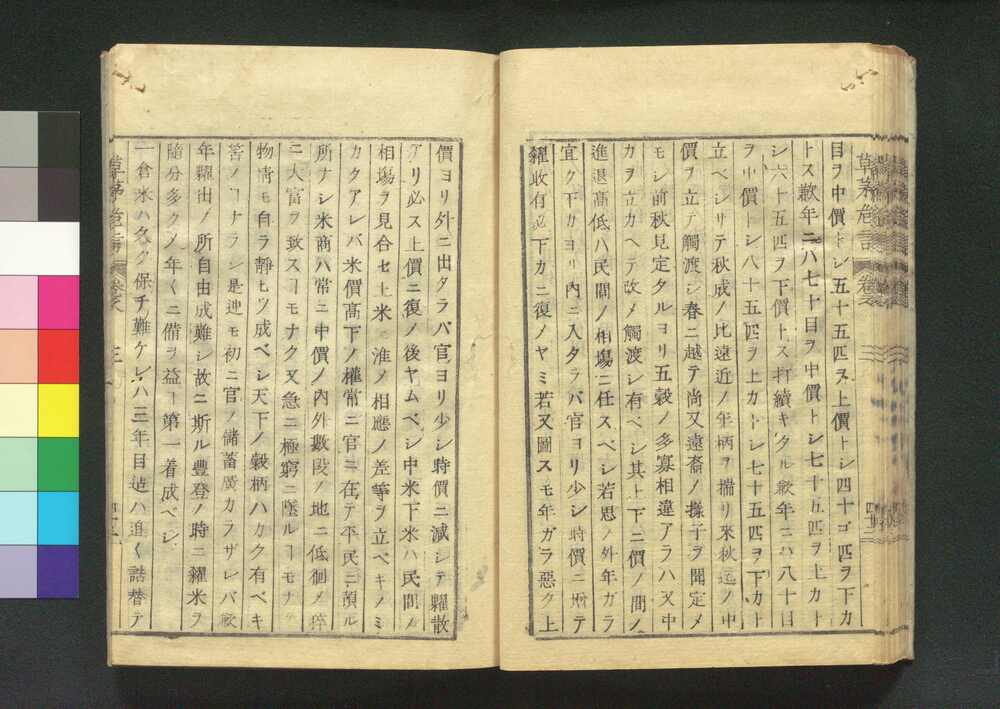 目ヲ中價トシ五十五匹ヲ上價トシ四十五匹ヲ下カ
トス歉年ニハ七十目ヲ中價トシ七十五匹ヲ上カト
シ六十五匹ヲ下價トス打續キタル歉年ニハ八十目
ヲ中價トシ八十五匹ヲ上カトシ七十五匹ヲ下カト
立ベシサテ秋成ノ比遠近ノ年柄ヲ揣リ來秋迄ノ中
價ヲ立テ觸渡シ春ニ越テ尚又遠裔ノ様子ヲ聞定メ
モシ前秋見定タルヨリ五穀ノ多寡相違アラハ又中
カヲ立カヘテ改メ觸渡シ有ベシ其上下ニ價ノ間ノ
進退高低ハ民間ノ相塲ニ任スベシ若思ノ外年ガラ
宜ク下カヨリ内ニ入タラバ官ヨリ少シ時價ニ増テ
糴收有必下カニ復ノヤミ若又圖スモ年ガラ惡ク上
價ヨリ外ニ出タラバ官ヨリ少シ時價ニ減シテ糶散
アリ必ス上價ニ復ノ後ヤムベシ中米下米ハ民間ノ
相塲ヲ見合セ上米ニ准メ相應ノ差等ヲ立ベキノミ
カクアレバ米價高下ノ權常ニ官ニ在テ平民ニ預ル
所ナシ米商ハ常ニ中價ノ内外數段ノ地ニ低徊メ
ニ大富ヲ致スヿモナク又急ニ極窮ニ陷ルヿモナ
物情モ自ラ靜ヒツ成ベシ天下ノ穀柄ハカク有ベキ
筈ノヿナラシ是迚モ初ニ官ノ儲蓄廣カラザレバ歉
年糶出ノ所自由成難シ故ニ斯ル豊登ノ時ニ糴米ヲ
隨分多クメ年〱ニ備ヲ益ヿ第一着成ベシ
一倉米ハ久ク保チ難ケレハ三年目迠ハ追〱詰替テ
草茅危言
三